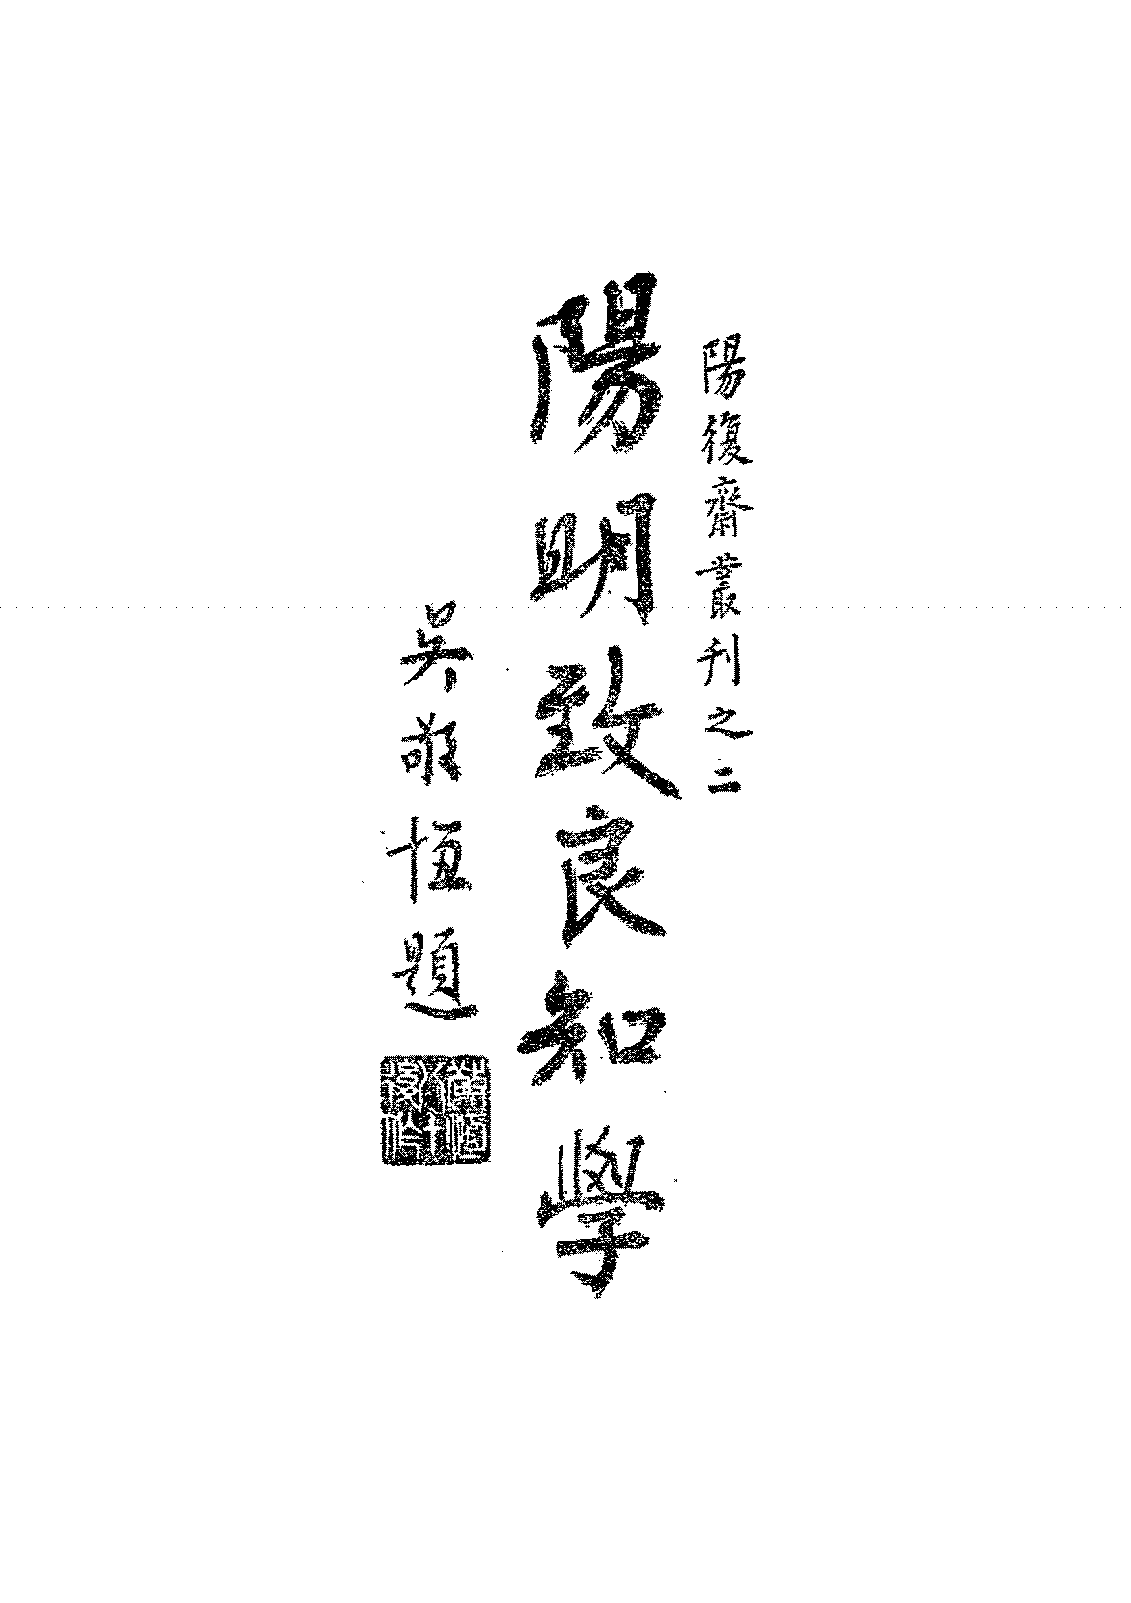 陽復齋叢刊之二
陽明致良知學
吳敬恆題